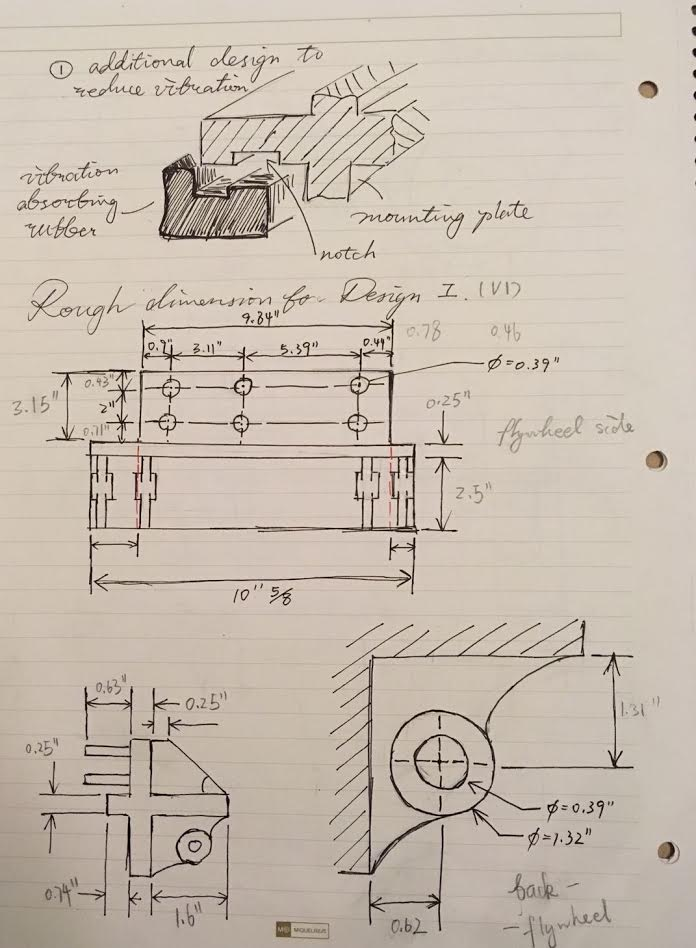 ① additional design to
reduce vibration
vibration
absorbing
rubber
mounting plate
notch
Rough dimension for Design I. (V1)
9.84"
0.78 0.46
0.9" 3.11" 5.39" 0.44"
φ=0.39"
0.43"
3.15"
2"
0.71"
0.25"
flywheel side
2.5"
10" 5/8
0.63"
0.25"
0.25"
1.31"
φ=0.39"
φ=1.32"
0.74"
1.6"
0.62
back -
- flywheel
MIQUELRIUS